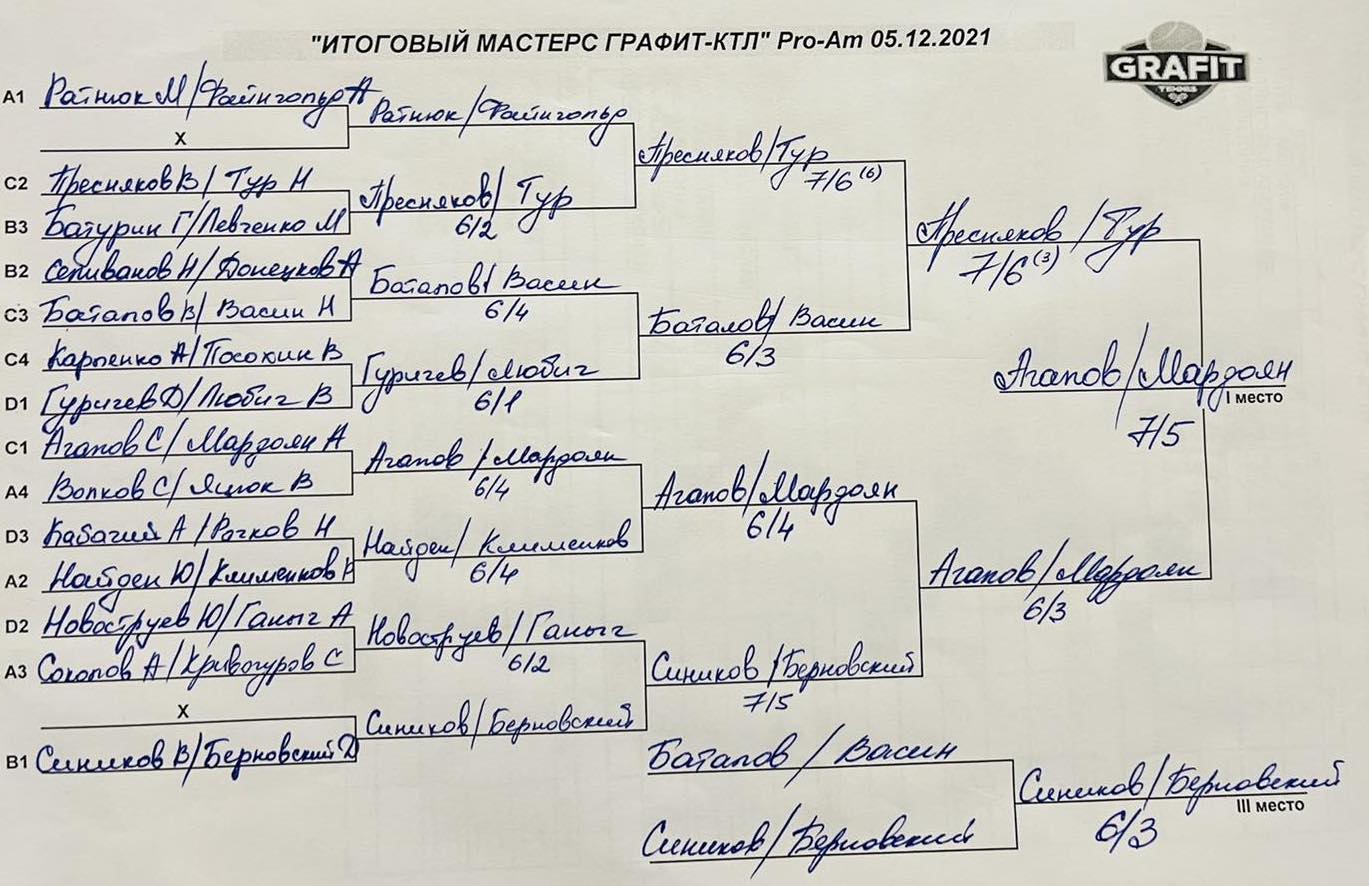 "ИТОГОВЫЙ МАСТЕРС ГРАФИТ-КТЛ" Pro-Am 05.12.2021
GRAFIT
TENNIS
A1 Ратнюк М/Файнгольд А
X
Ратнюк/Файнгольд
C2 Пресняков В/Тур Н
B3 Батурин Г/Левченко М
Пресняков/Тур
6/2
Пресняков/Тур
7/6 (6)
B2 Селиванов Н/Донецков А
C3 Баталов В/Васин Н
Баталов/Васин
6/4
C4 Карпенко А/Посохин В
D1 Гуричев Д/Любич В
Гуричев/Любич
6/1
Баталов/Васин
6/3
Пресняков/Тур
7/6 (3)
C1 Агапов С/Мардоян А
A4 Волков С/Яцюк В
Агапов/Мардоян
6/4
D3 Кабачий А/Рачков Н
A2 Найден Ю/Клименков
Найден/Клименков
6/4
Агапов/Мардоян
6/4
D2 Новоструев Ю/Ганыч А
A3 Соколов А/Кривогуров С
Новоструев/Ганыч
6/2
X
B1 Сиников В/Берновский Д
Сиников/Берновский
Сиников/Берновский
7/5
Агапов/Мардоян
6/3
Агапов/Мардоян
I место
7/5
Баталов/Васин
Сиников/Берновский
Сиников/Берновский
III место
6/3